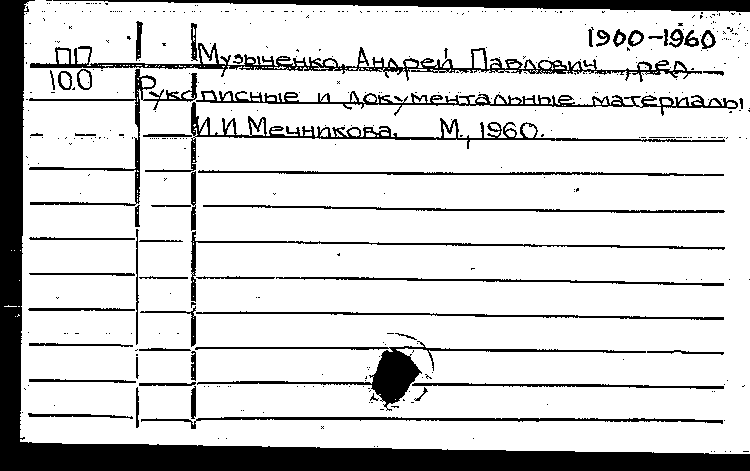 1900-1960
ПП Музыченко, Андрей Павлович, ред.
100 Рукописные и документальные материалы
И.И Мечникова. М., 1960.